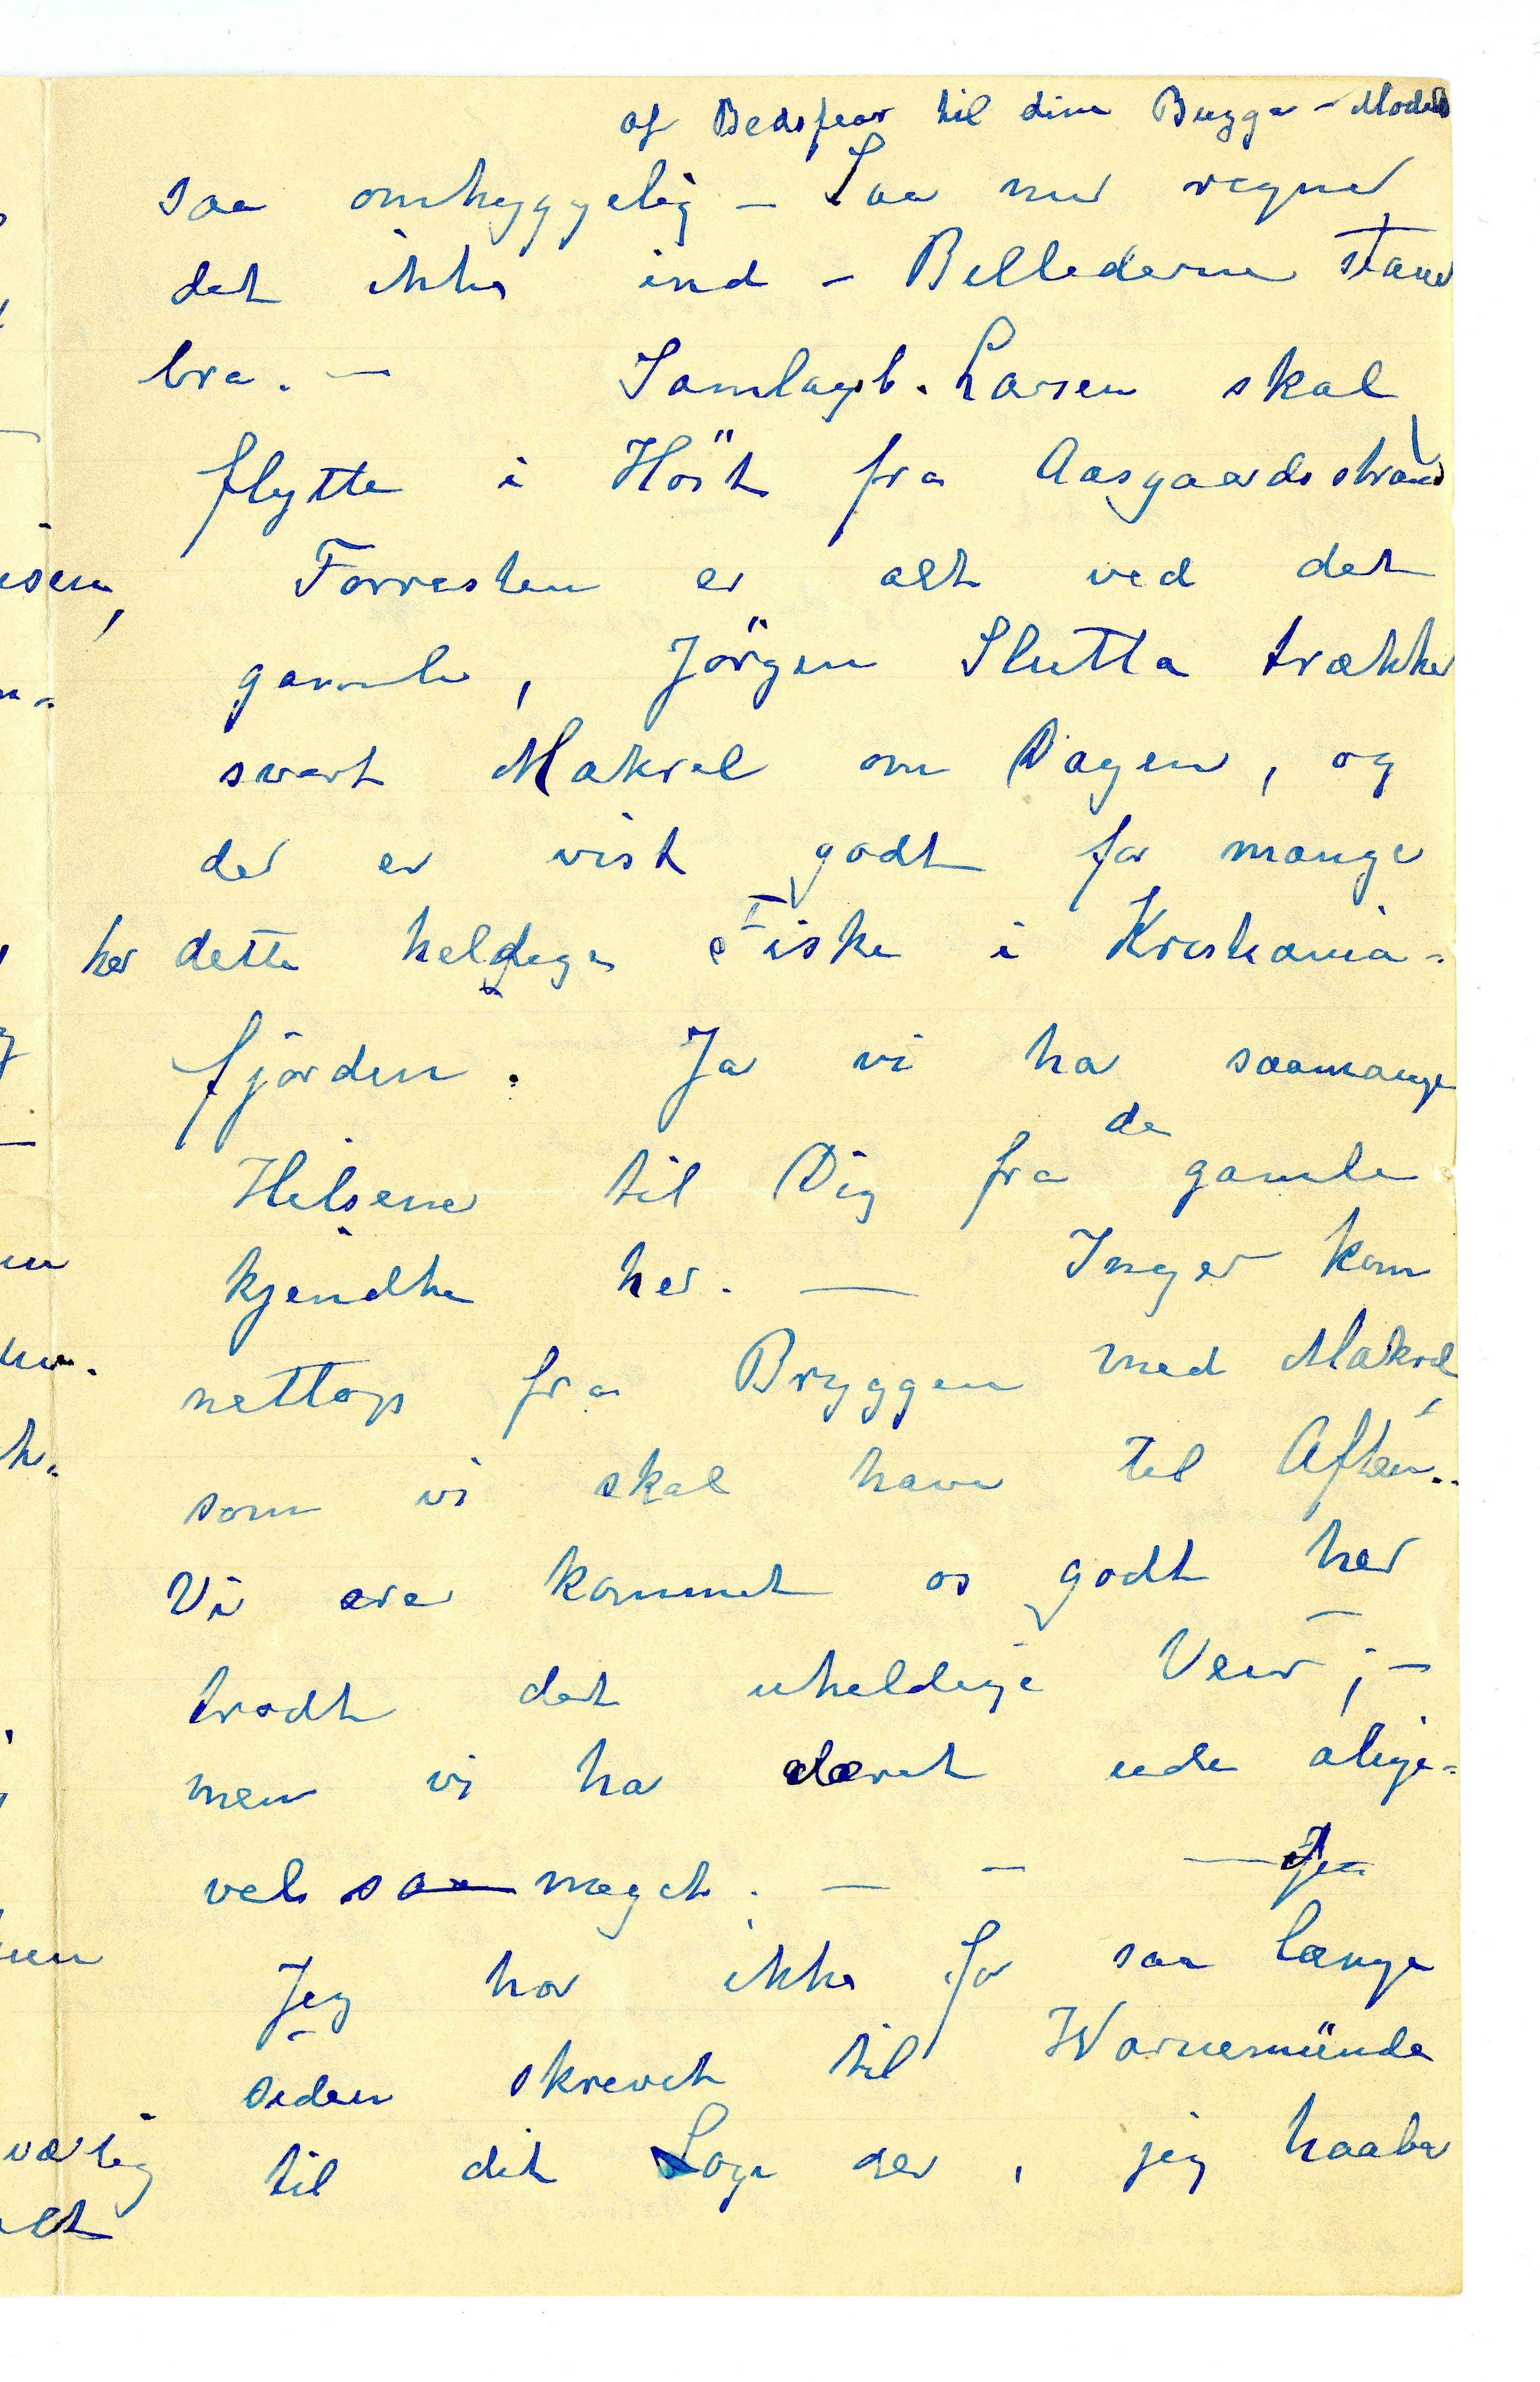 af Bedstfar til dine Bygge-Modeller
saa omhyggelig – Saa nu regner
det ikke ind – Billederne staar
bra. – Samlagsb. Larsen skal
flytte i Höst fra Aasgaardsstrand
Forresten er alt ved det
gamle, Jörgen Slutta trækker
svært Makrel om Dagen, og
det er vist godt for mange
her dette heldige Fiske i Kristiania-
fjorden. Ja vi har saamange
Hilsener til Dig fra de gamle
kjendte her. — Inger kom
nettop fra Bryggen med Makrel,
som vi skal have til Aften..
Vi ere kommet os godt her
trodt det uheldige Veir; –
men vi ha været ude alige-
vel saa meget. – – —
Jeg har ikke for saa længe
siden skrevet til Warnemünde
til dit Logi der, jeg haaber